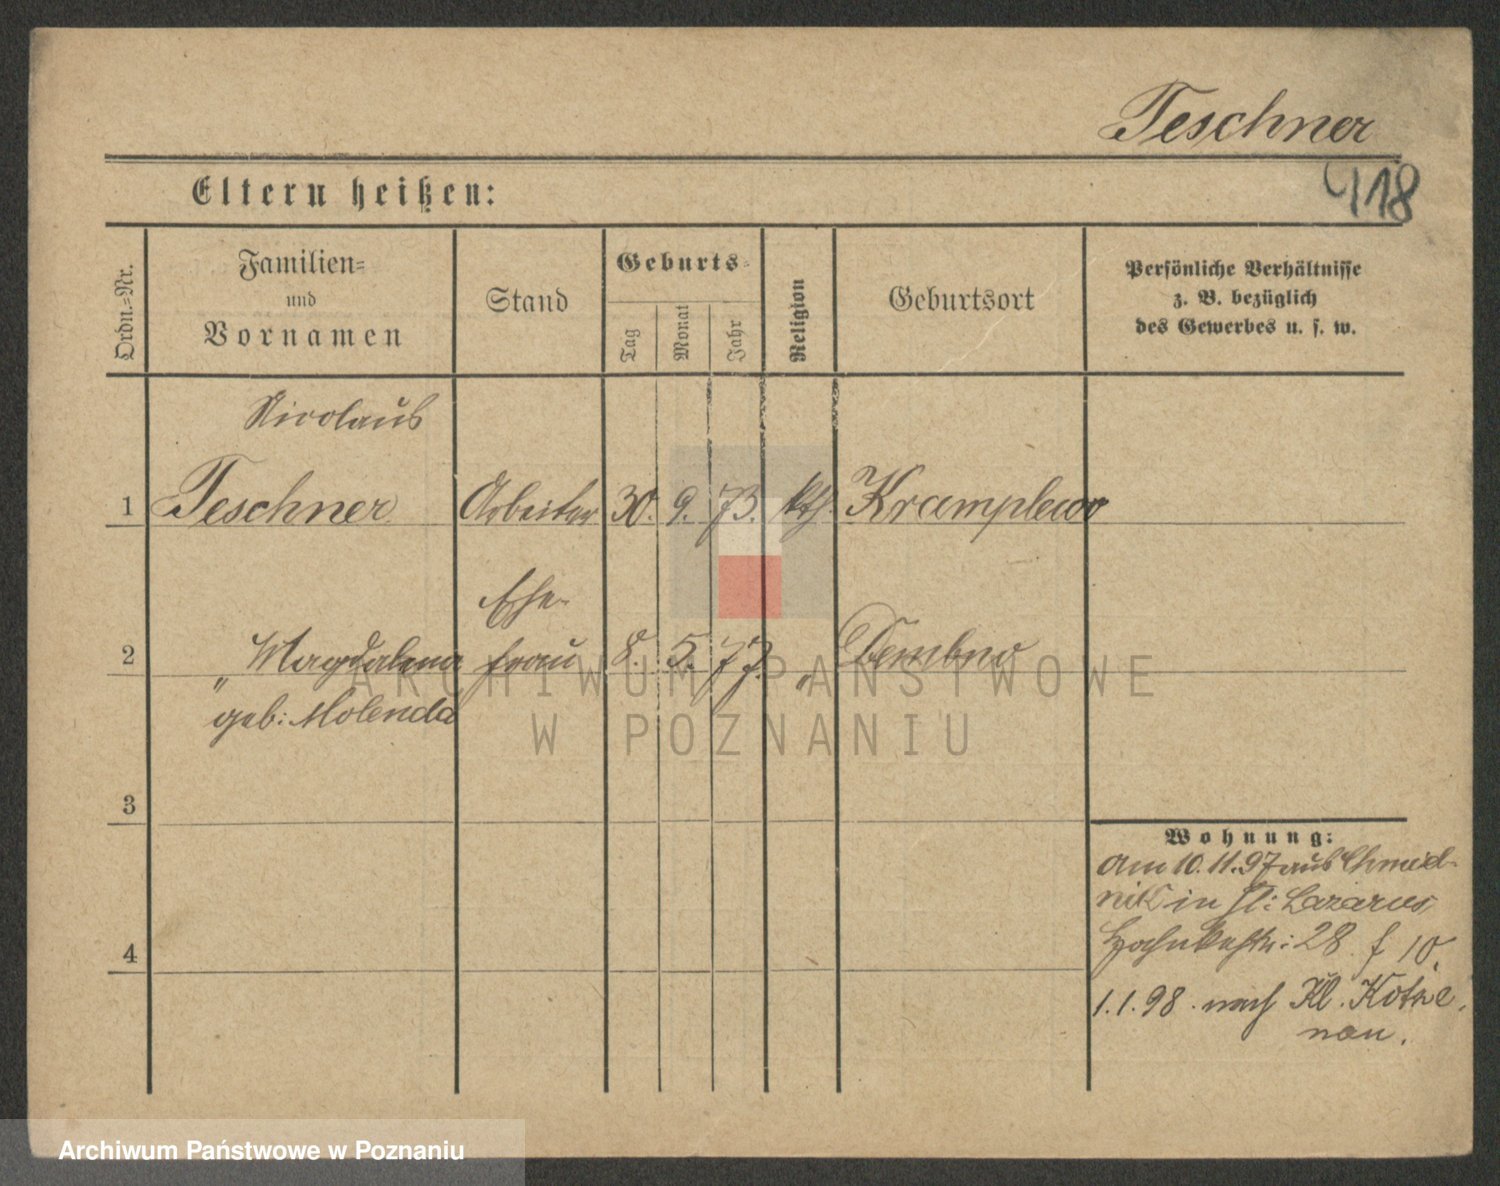 Teschner
118
Eltern heißen:
Ordn.=Nr.
Familien=
und
Vornamen
Stand
Geburts=
Tag
Monat
Jahr
Religion
Geburtsort
Persönliche Verhältnisse
z. B. bezüglich
des Gewerbes u. s. w.
Nicolaus
1 Teschner Arbeiter 30. 9. 73. kth. Kramplewo
Ehe-
2 " Magdalena frau 8. 5. 77. " Dembno
geb: Molenda
3
4
Wohnung:
Am 10.11.97 aus Chmiel-
nik in St: Lazarus,
28 f 10.
1.1.98. nach Kl. Koto
nau.
ARCHIWUM PAŃSTWOWE
W POZNANIU
Archiwum Państwowe w Poznaniu